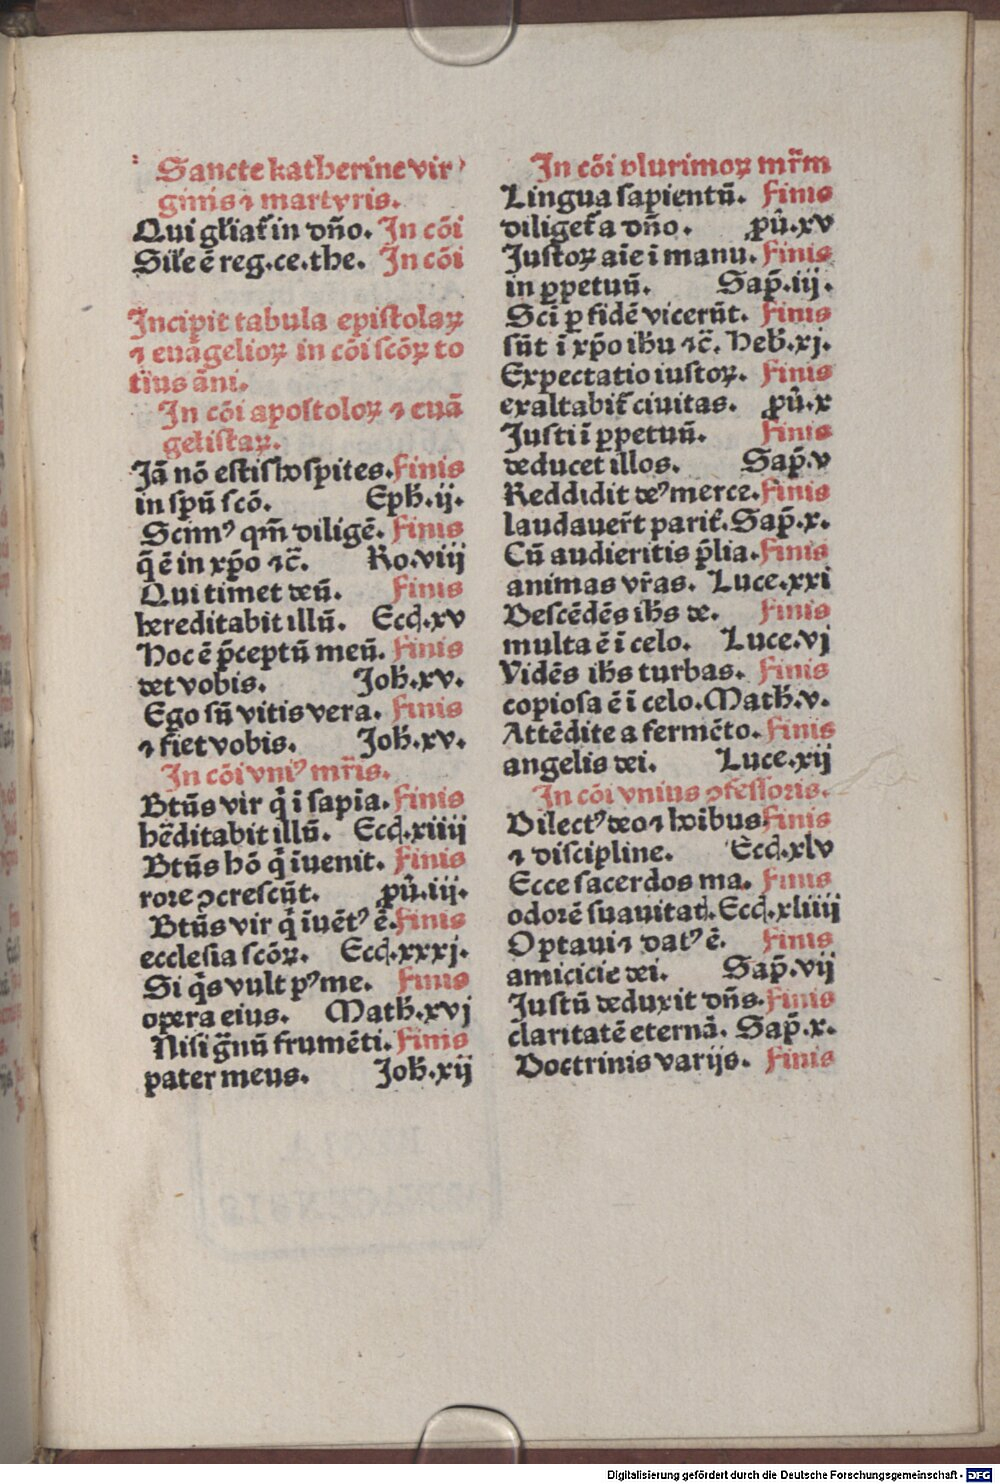 Sancte katherine vir
ginis ⁊ martyris.
Qui gl'iat᷑ in dn̄o. In cōi
Sil'e ē reg.ce.the. In cōi
Incipit tabula epistolaꝝ
⁊ euāgelioꝝ in cōi scōꝝ to
tius āni.
In cōi apostoloꝝ ⁊ euā
gelistaꝝ.
Jā nō estis hospites. Finis
in spū scō. Eph̄.ij.
Scimꝰ qm̄ diligē. Finis
q̄ ē in xp̄o ⁊c̄. Ro.viij
Qui timet deū. Finis
hereditabit illū. Eccl̄.xv
Hoc ē p̄ceptū meū. Finis
det vobis. Joh̄.xv.
Ego sū vitis vera. Finis
⁊ fiet vobis. Joh̄.xv.
In cōi vniꝰ mr̄is.
Btūs vir q̇ i sapia. Finis
hēditabit illū. Eccl̄.xiiij
Btūs hō q̇ iuenit. Finis
rore ꝯcrescūt. ꝓū.iij.
Btūs vir q̇ iuētꝰ ē. Finis
ecclesia scōꝝ. Eccl̄.xxxj.
Si q̇s vult pꝰ me. Finis
opera eius. Math̄.xvj
Nisi g̈nū frumēti. Finis
pater meus. Joh̄.xij
In cōi plurimoꝝ mr̄m
Lingua sapientū. Finis
diliget᷑ a dn̄o. ꝓū.xv
Justoꝝ aīe i manu. Finis
in ꝑpetuū. Sap̄.iij.
Sci ꝑ fidē vicerūt. Finis
sūt ī xp̄o ihū ⁊c̄. Heb̄.xj.
Expectatio iustoꝝ. Finis
exaltabit᷑ ciuitas. ꝓū.x
Justi ī ꝑpetuū. Finis
deducet illos. Sap̄.v
Reddidit deꝰ merce. Finis
laudauer̄t parit᷑. Sap̄.x.
Cū audieritis p̄lia. Finis
animas vr̄as. Luce.xxi
Descēdēs ihs de. Finis
multa ē ī celo. Luce.vj
Vidēs ihs turbas. Finis
copiosa ē ī celo. Math̄.v.
Attēdite a fermēto. Finis
angelis dei. Luce.xij
In cōi vnius ꝯfessoris.
Dilectꝰ deo ⁊ hoibus Finis
⁊ discipline. Eccl̄.xlv
Ecce sacerdos ma. Finis
odorē suauitat̄. Eccl̄.xliiij
Optaui ⁊ datꝰ ē. Finis
amicicie dei. Sap̄.vij
Justū deduxit dn̄s. Finis
claritatē eternā. Sap̄.x.
Doctrinis varijs. Finis
Digitalisierung gefördert durch die Deutsche Forschungsgemeinschaft - DFG